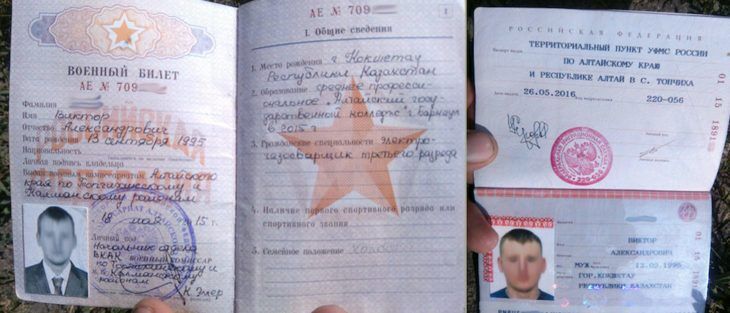 ВОЕННЫЙ БИЛЕТ
АЕ № 709
Фамилия
Имя Виктор
Отчество Александрович
Дата рождения 13 сентября 1995
Национальность
Личная подпись владельца
Выдан военным комиссариатом Алтайского
края по Топчихинскому и
Калманскому районам
18 мая 15 г.
Личный
Начальник отдела
ВКАК ВОЕННЫЙ КОМИССАР
по Топчихинскому и
Калманскому
районам
К. Эллер
АЕ № 709
1
I. Общие сведения
1. Место рождения г. Кокшетау
Республики Казахстан
2. Образование среднее професси-
ональное "Алтайский госу-
дарственный колледж" г. Барнаул
в 2015 г
3. Гражданские специальности электро-
газосварщик третьего разряда
4. Наличие первого спортивного разряда или
спортивного звания
5. Семейное положение холост
РОССИЙСКАЯ ФЕДЕРАЦИЯ
Паспорт выдан
ТЕРРИТОРИАЛЬНЫЙ ПУНКТ УФМС РОССИИ
ПО АЛТАЙСКОМУ КРАЮ
И РЕСПУБЛИКЕ АЛТАЙ В С. ТОПЧИХА
26.05.2016
220-056
01 15 1891
ВИКТОР
АЛЕКСАНДРОВИЧ
МУЖ. 13.09.1995
ГОР. КОКШЕТАУ
РЕСПУБЛИКИ КАЗАХСТАН
01 15